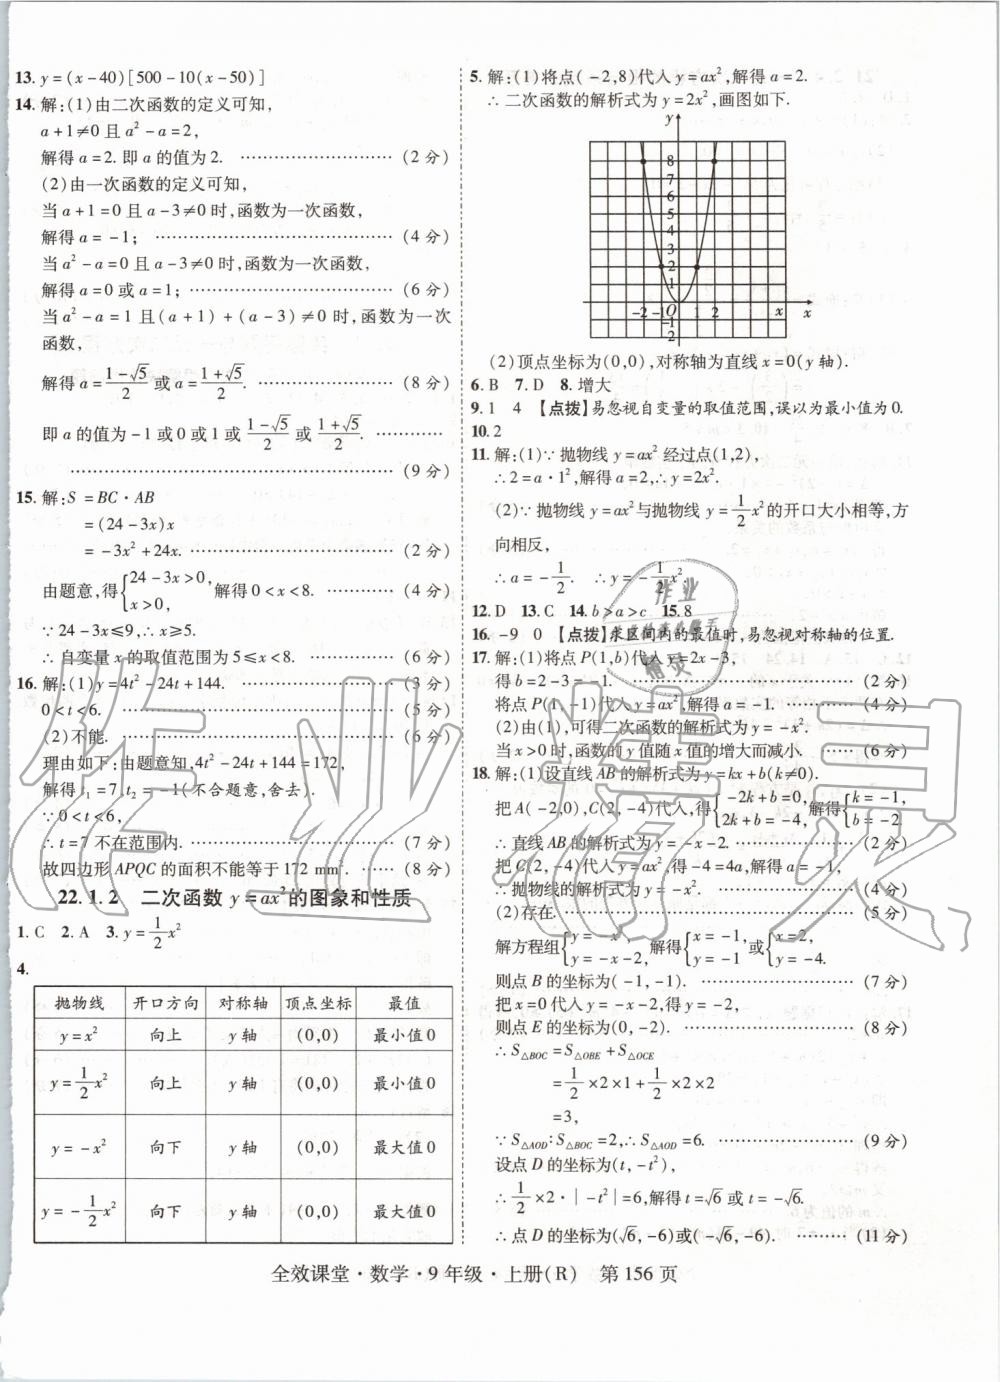 13. y=(x-40)[500-10(x-50)]
14. 解:(1)由二次函数的定义可知,
a+1≠0 且 a²-a=2,
解得 a=2. 即 a 的值为 2. ………………………… (2 分)
(2)由一次函数的定义可知,
当 a+1=0 且 a-3≠0 时,函数为一次函数,
解得 a=-1; ………………………… (4 分)
当 a²-a=0 且 a-3≠0 时,函数为一次函数,
解得 a=0 或 a=1; ………………………… (6 分)
当 a²-a=1 且(a+1)+(a-3)≠0 时,函数为一次
函数,
解得 a=(1-√5)/2 或 a=(1+√5)/2. ………………………… (8 分)
即 a 的值为-1 或 0 或 1 或 (1-√5)/2 或 (1+√5)/2. …………
………………………… (9 分)
15. 解:S =BC·AB
=(24-3x)x
=-3x²+24x. ………………………… (2 分)
由题意,得{24-3x>0, x>0, 解得 0<x<8. ………… (4 分)
∵24-3x≤9,∴x≥5.
∴自变量 x 的取值范围为 5≤x<8. ………… (6 分)
16. 解:(1)y=4t²-24t+144. ………………… (3 分)
0<t<6. ………………………… (5 分)
(2)不能. ………………………… (6 分)
理由如下:由题意知,4t²-24t+144=172,
解得 t₁=7,t₂=-1(不合题意,舍去).
∵0<t<6,
∴t=7 不在范围内. ………………… (7 分)
故四边形 APQC 的面积不能等于 172 mm². …… (8 分)
22.1.2 二次函数 y=ax²的图象和性质
1. C 2. A 3. y=1/2x²
4.
抛物线 开口方向 对称轴 顶点坐标 最值
y=x² 向上 y 轴 (0,0) 最小值 0
y=1/2x² 向上 y 轴 (0,0) 最小值 0
y=-x² 向下 y 轴 (0,0) 最大值 0
y=-1/2x² 向下 y 轴 (0,0) 最大值 0
5. 解:(1)将点(-2,8)代入 y=ax²,解得 a=2.
∴二次函数的解析式为 y=2x²,画图如下.
y
8
7
6
5
4
3
2
1
-2 -1 O 1 2 x x
-1
-2
(2)顶点坐标为(0,0),对称轴为直线 x=0(y 轴).
6. B 7. D 8. 增大
9. 1 4 【点拨】易忽视自变量的取值范围,误以为最小值为 0.
10. 2
11. 解:(1)∵抛物线 y=ax² 经过点(1,2),
∴2=a·1²,解得 a=2,∴y=2x².
(2)∵抛物线 y=ax²与抛物线 y=1/2x²的开口大小相等,方
向相反,
∴a=-1/2. ∴y=-1/2x².
12. D 13. C 14. b>a>c 15. 8
16. -9 0 【点拨】求区间内的最值时,易忽视对称轴的位置.
17. 解:(1)将点 P(1,b)代入 y=2x-3,
得 b=2-3=-1. ………………… (2 分)
将点 P(1,-1)代入 y=ax²,解得 a=-1. ………… (4 分)
(2)由(1),可得二次函数的解析式为 y=-x².
当 x>0 时,函数的 y 值随 x 值的增大而减小. …… (6 分)
18. 解:(1)设直线 AB 的解析式为 y=kx+b(k≠0).
把 A(-2,0),C(2,-4)代入,得{-2k+b=0, 2k+b=-4, 解得{k=-1, b=-2.
∴直线 AB 的解析式为 y=-x-2. ………… (2 分)
把 C(2,-4)代入 y=ax²,得-4=4a,解得 a=-1,
∴抛物线的解析式为 y=-x². ………… (4 分)
(2)存在. ………………………… (5 分)
解方程组{y=-x², y=-x-2, 解得{x=-1, y=-1 或{x=2, y=-4.
则点 B 的坐标为(-1,-1). ………………… (7 分)
把 x=0 代入 y=-x-2,得 y=-2,
则点 E 的坐标为(0,-2). ………………… (8 分)
∴S△BOC=S△OBE+S△OCE
=1/2×2×1+1/2×2×2
=3,
∵S△AOD:S△BOC=2,∴S△AOD=6. ………………… (9 分)
设点 D 的坐标为(t,-t²),
∴1/2×2·|-t²|=6,解得 t=√6 或 t=-√6.
∴点 D 的坐标为(√6,-6)或(-√6,-6). ……… (11 分)
全效课堂·数学·9 年级·上册(R) 第 156 页
作业精灵